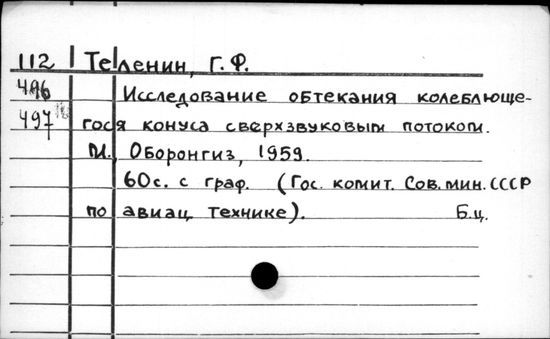 112 Теленин, Г. Ф.
496 Исследование обтекания колеблюще-
497 гося конуса сверхзвуковым потоком.
М., Оборонгиз, 1959.
60с. с граф. (Гос. комит. Сов. мин. СССР
по авиац. технике). Б.ц.